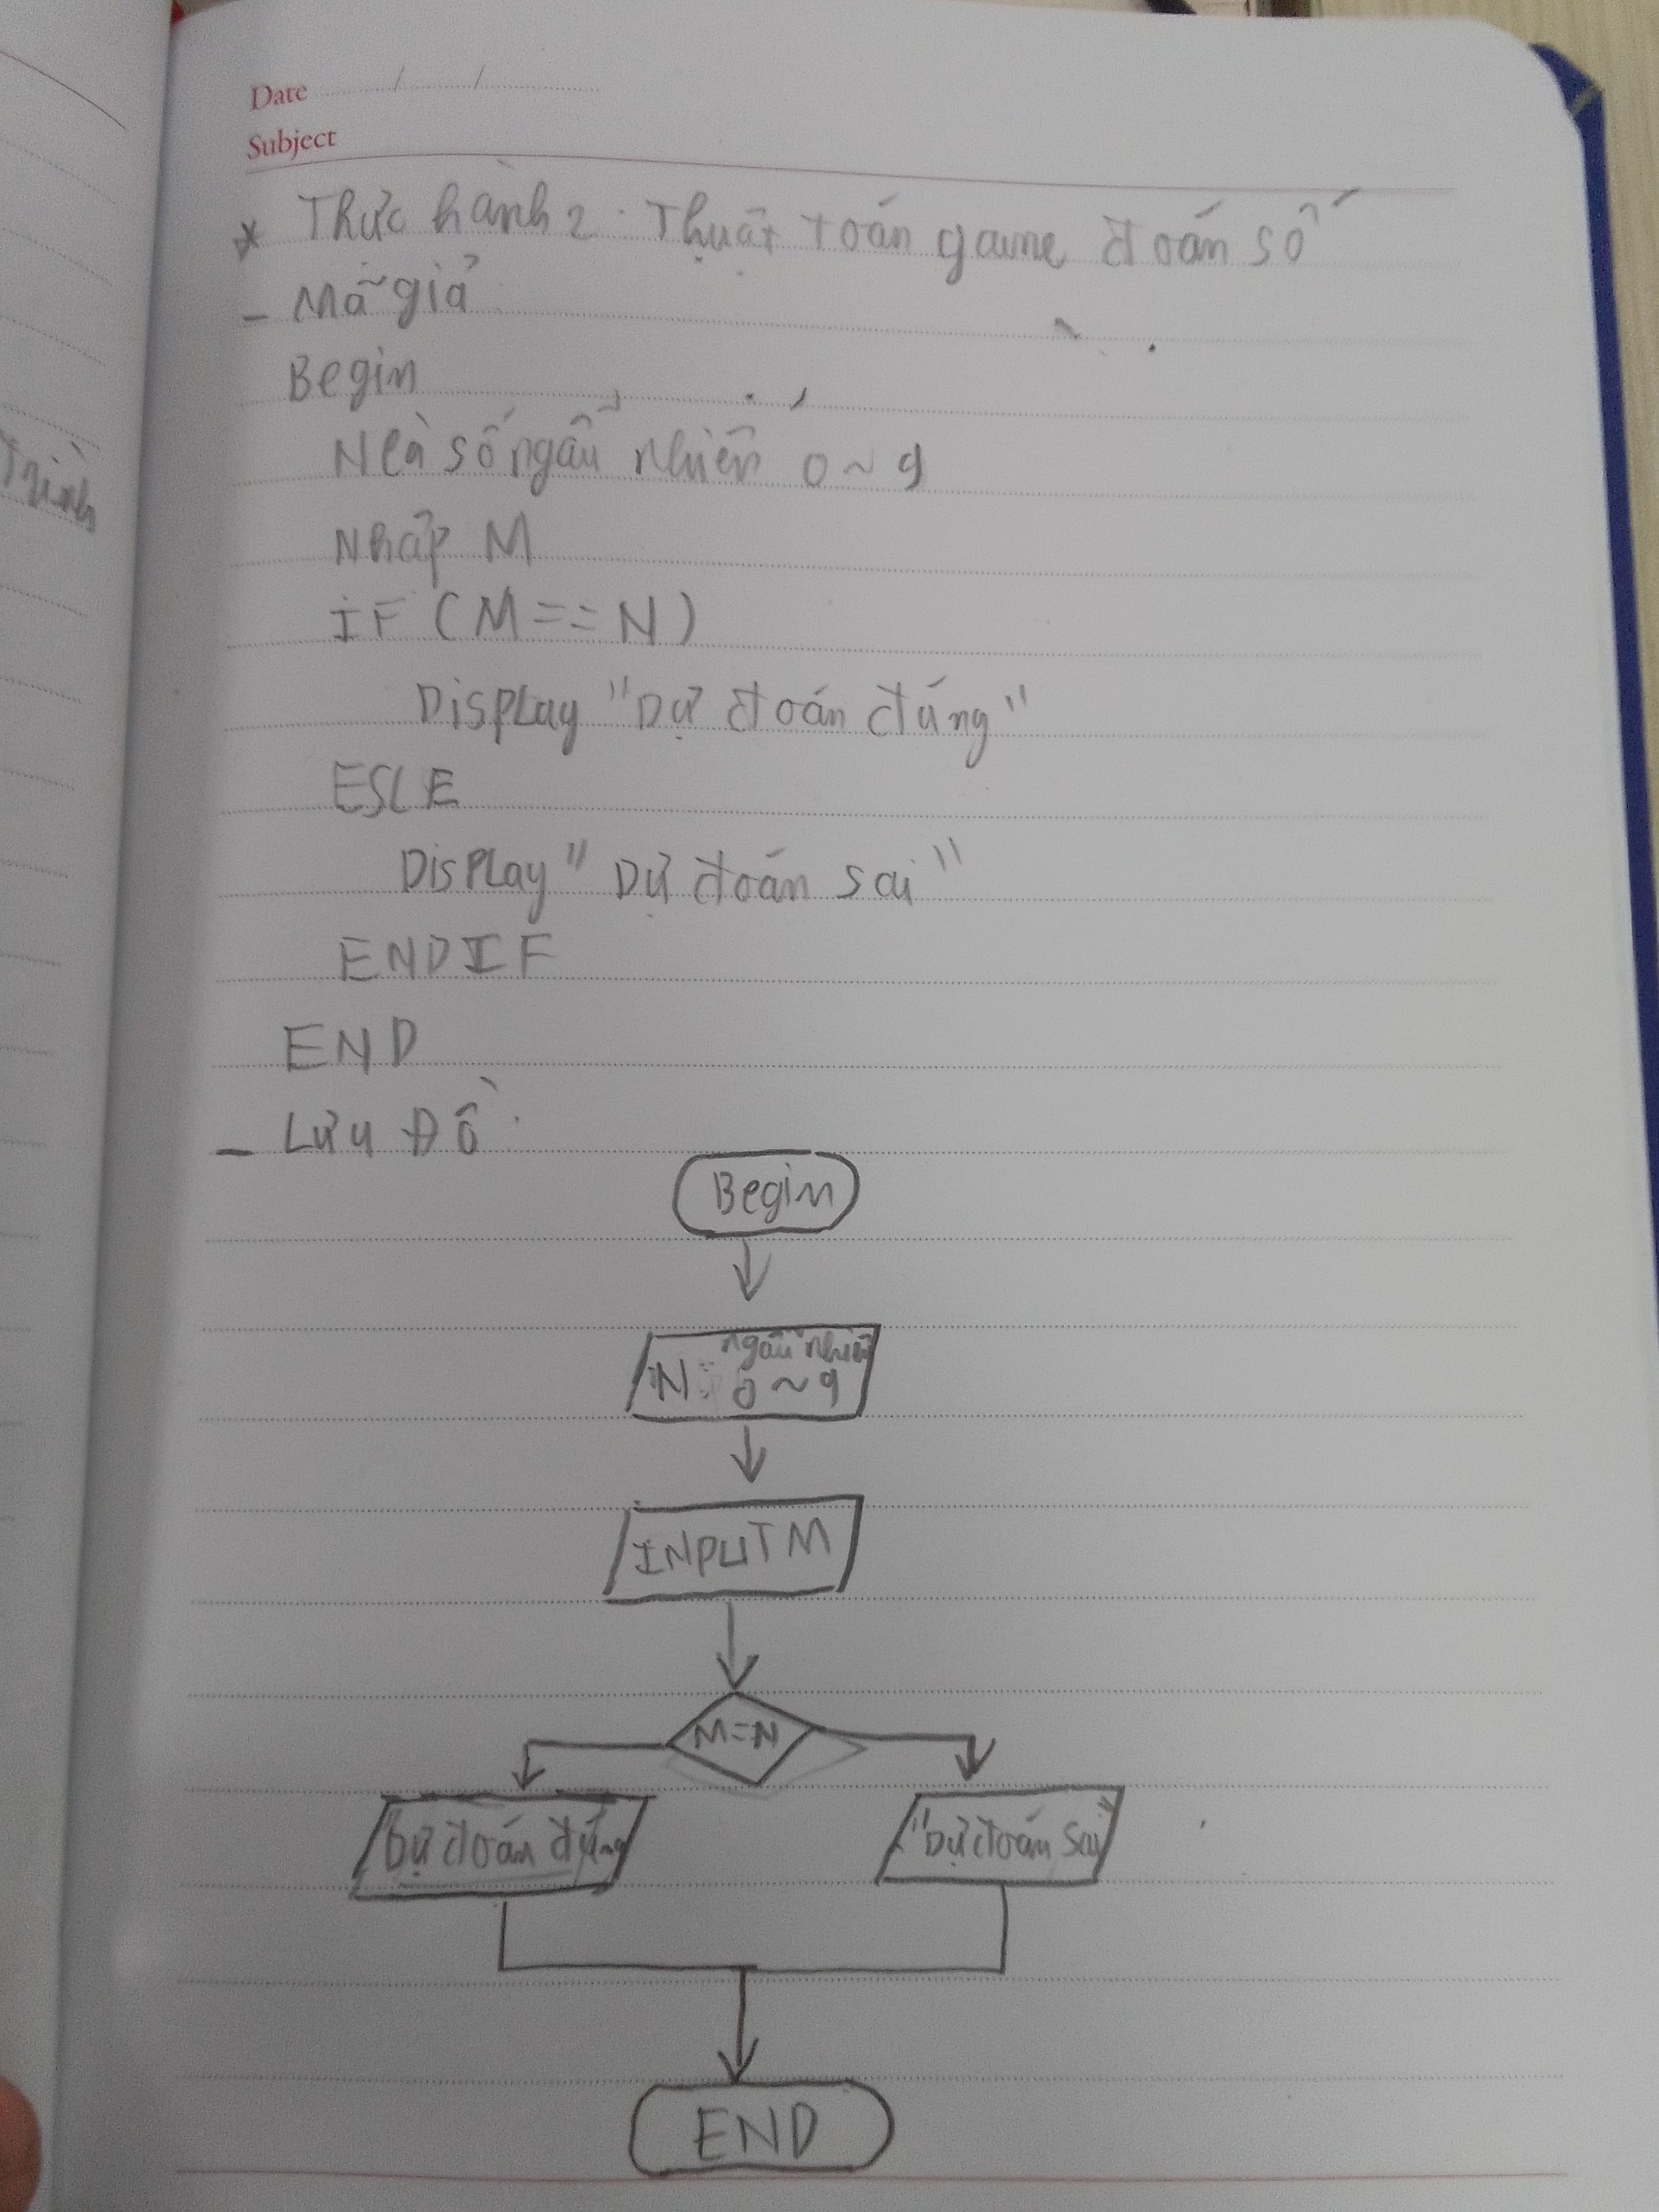 Date
Subject
* Thực hành 2: Thuật toán game đoán số
- Mã giả
Begin
N là số ngẫu nhiên 0 ~ 9
Nhập M
IF (M == N)
Display "Dự đoán đúng"
ESLE
Display "Dự đoán sai"
ENDIF
END
- Lưu Đồ:
Begin
N: ngẫu nhiên 0 ~ 9
INPUT M
M = N
"Dự đoán đúng
"Dự đoán sai"
END
Trình